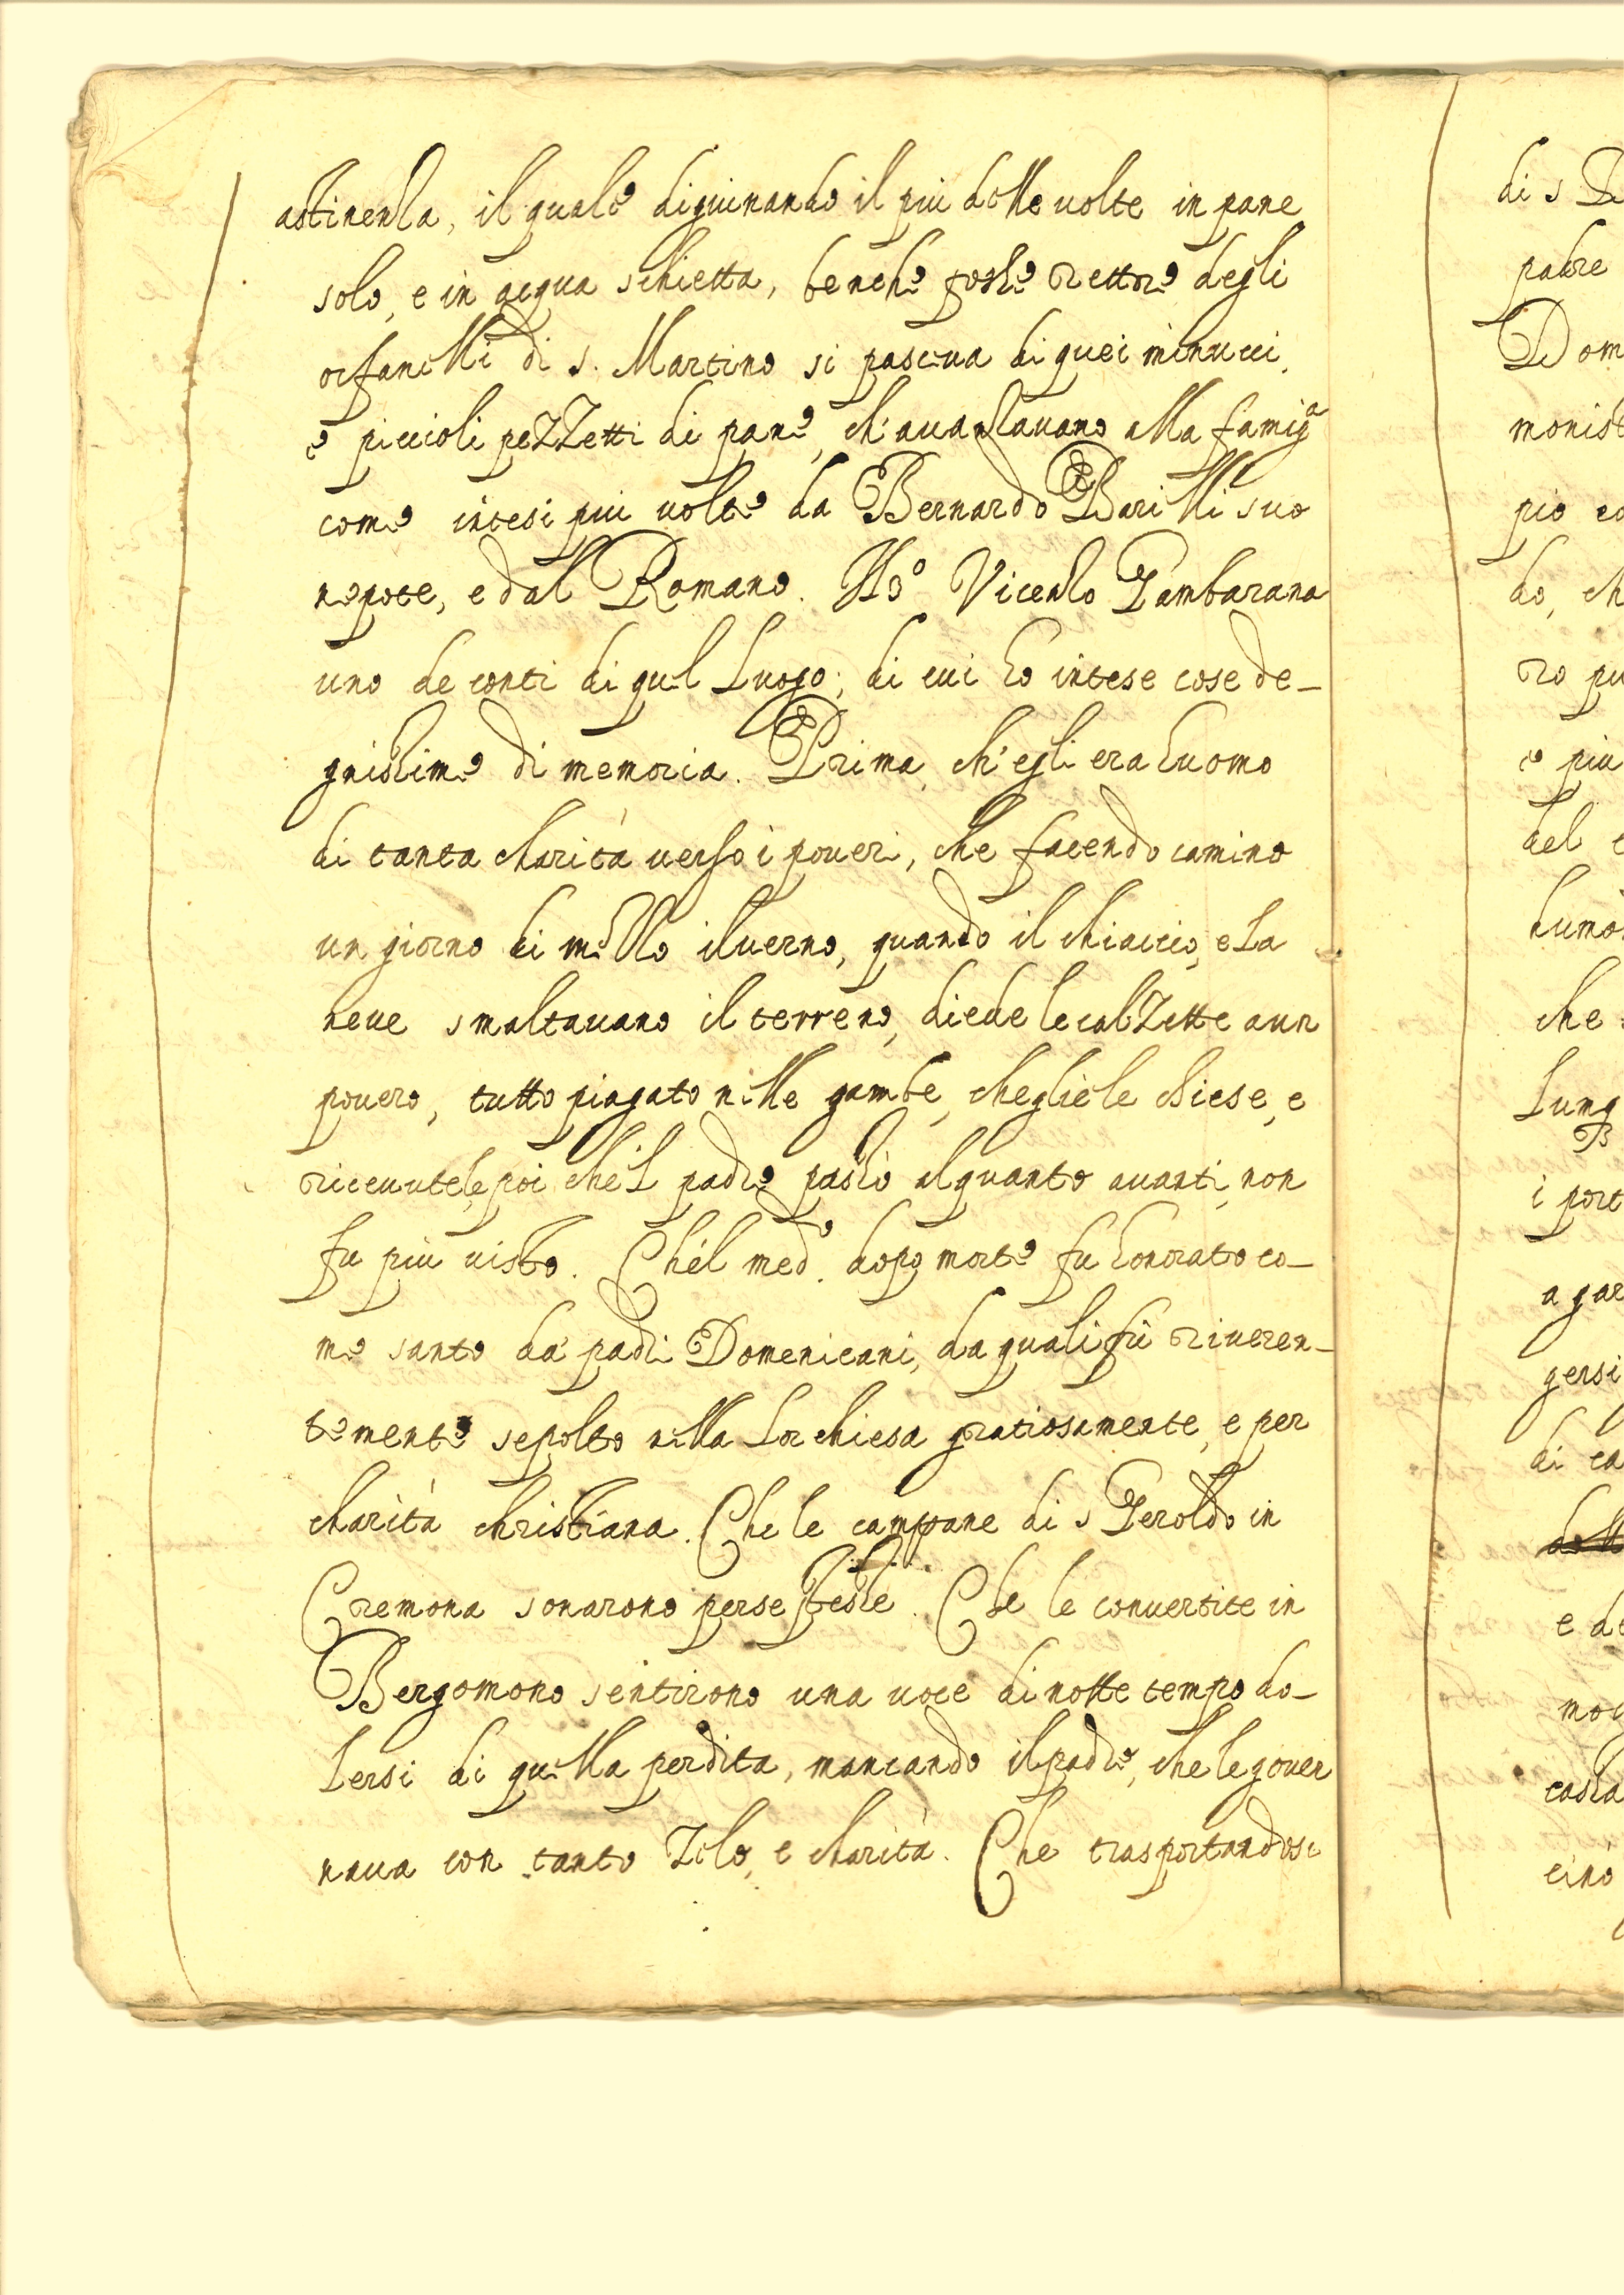 astinenza, il quale digiuinando il più delle uolte in pane
solo, e in acqua schietta, benche fosse rettore degli
orfanelli di s. Martino si pasceua di quei minucci,
e piccioli pezzetti di pane, ch'auanzauano alla famig.a
come intesi piu uolte da Bernardo Barilli suo
nepote, e dal Romano. Vicenzo Gambarana
uno de conti di quel luogo; di cui ho intese cose de-
gnissime di memoria. Prima, ch'egli era huomo
di tanta charità uerso i poueri, che facendo camino
un giorno di mezzo iluerno, quando il chiaccio, e la
neue smaltauano il terreno, diede le calzette a un
pouero, tutto piagato nelle gambe, che gliele chiese, e
riceuutele, poi che'l padre passò alquanto auanti, non
fu più uisto. Che'l med.o dopo morte fu honorato co-
me santo da' padri Domenicani, da quali fù riueren-
temente sepolto nella lor chiesa gratiosamente, e per
charità christiana. Che le campane di s Geroldo in
Cremona sonarono per se stesse. Che le conuertite in
Bergomono sentirono una uoce di notte tempo do-
lersi di quella perdita, mancando il padre, che le gouer
naua con tanto zelo, e charità. Che trasportandosi
di s
padre
Dom
monist
pio
do, ch
ro pu
e piu
del
humo
che
lung
i port
a gar
gersi
di ca
e de
mog
cassa
cinò